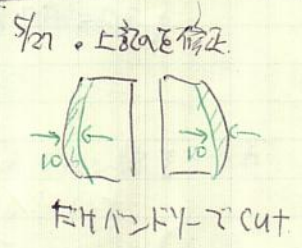 5/27 。上記のを修正.
10 10
だけバンドソーでCut